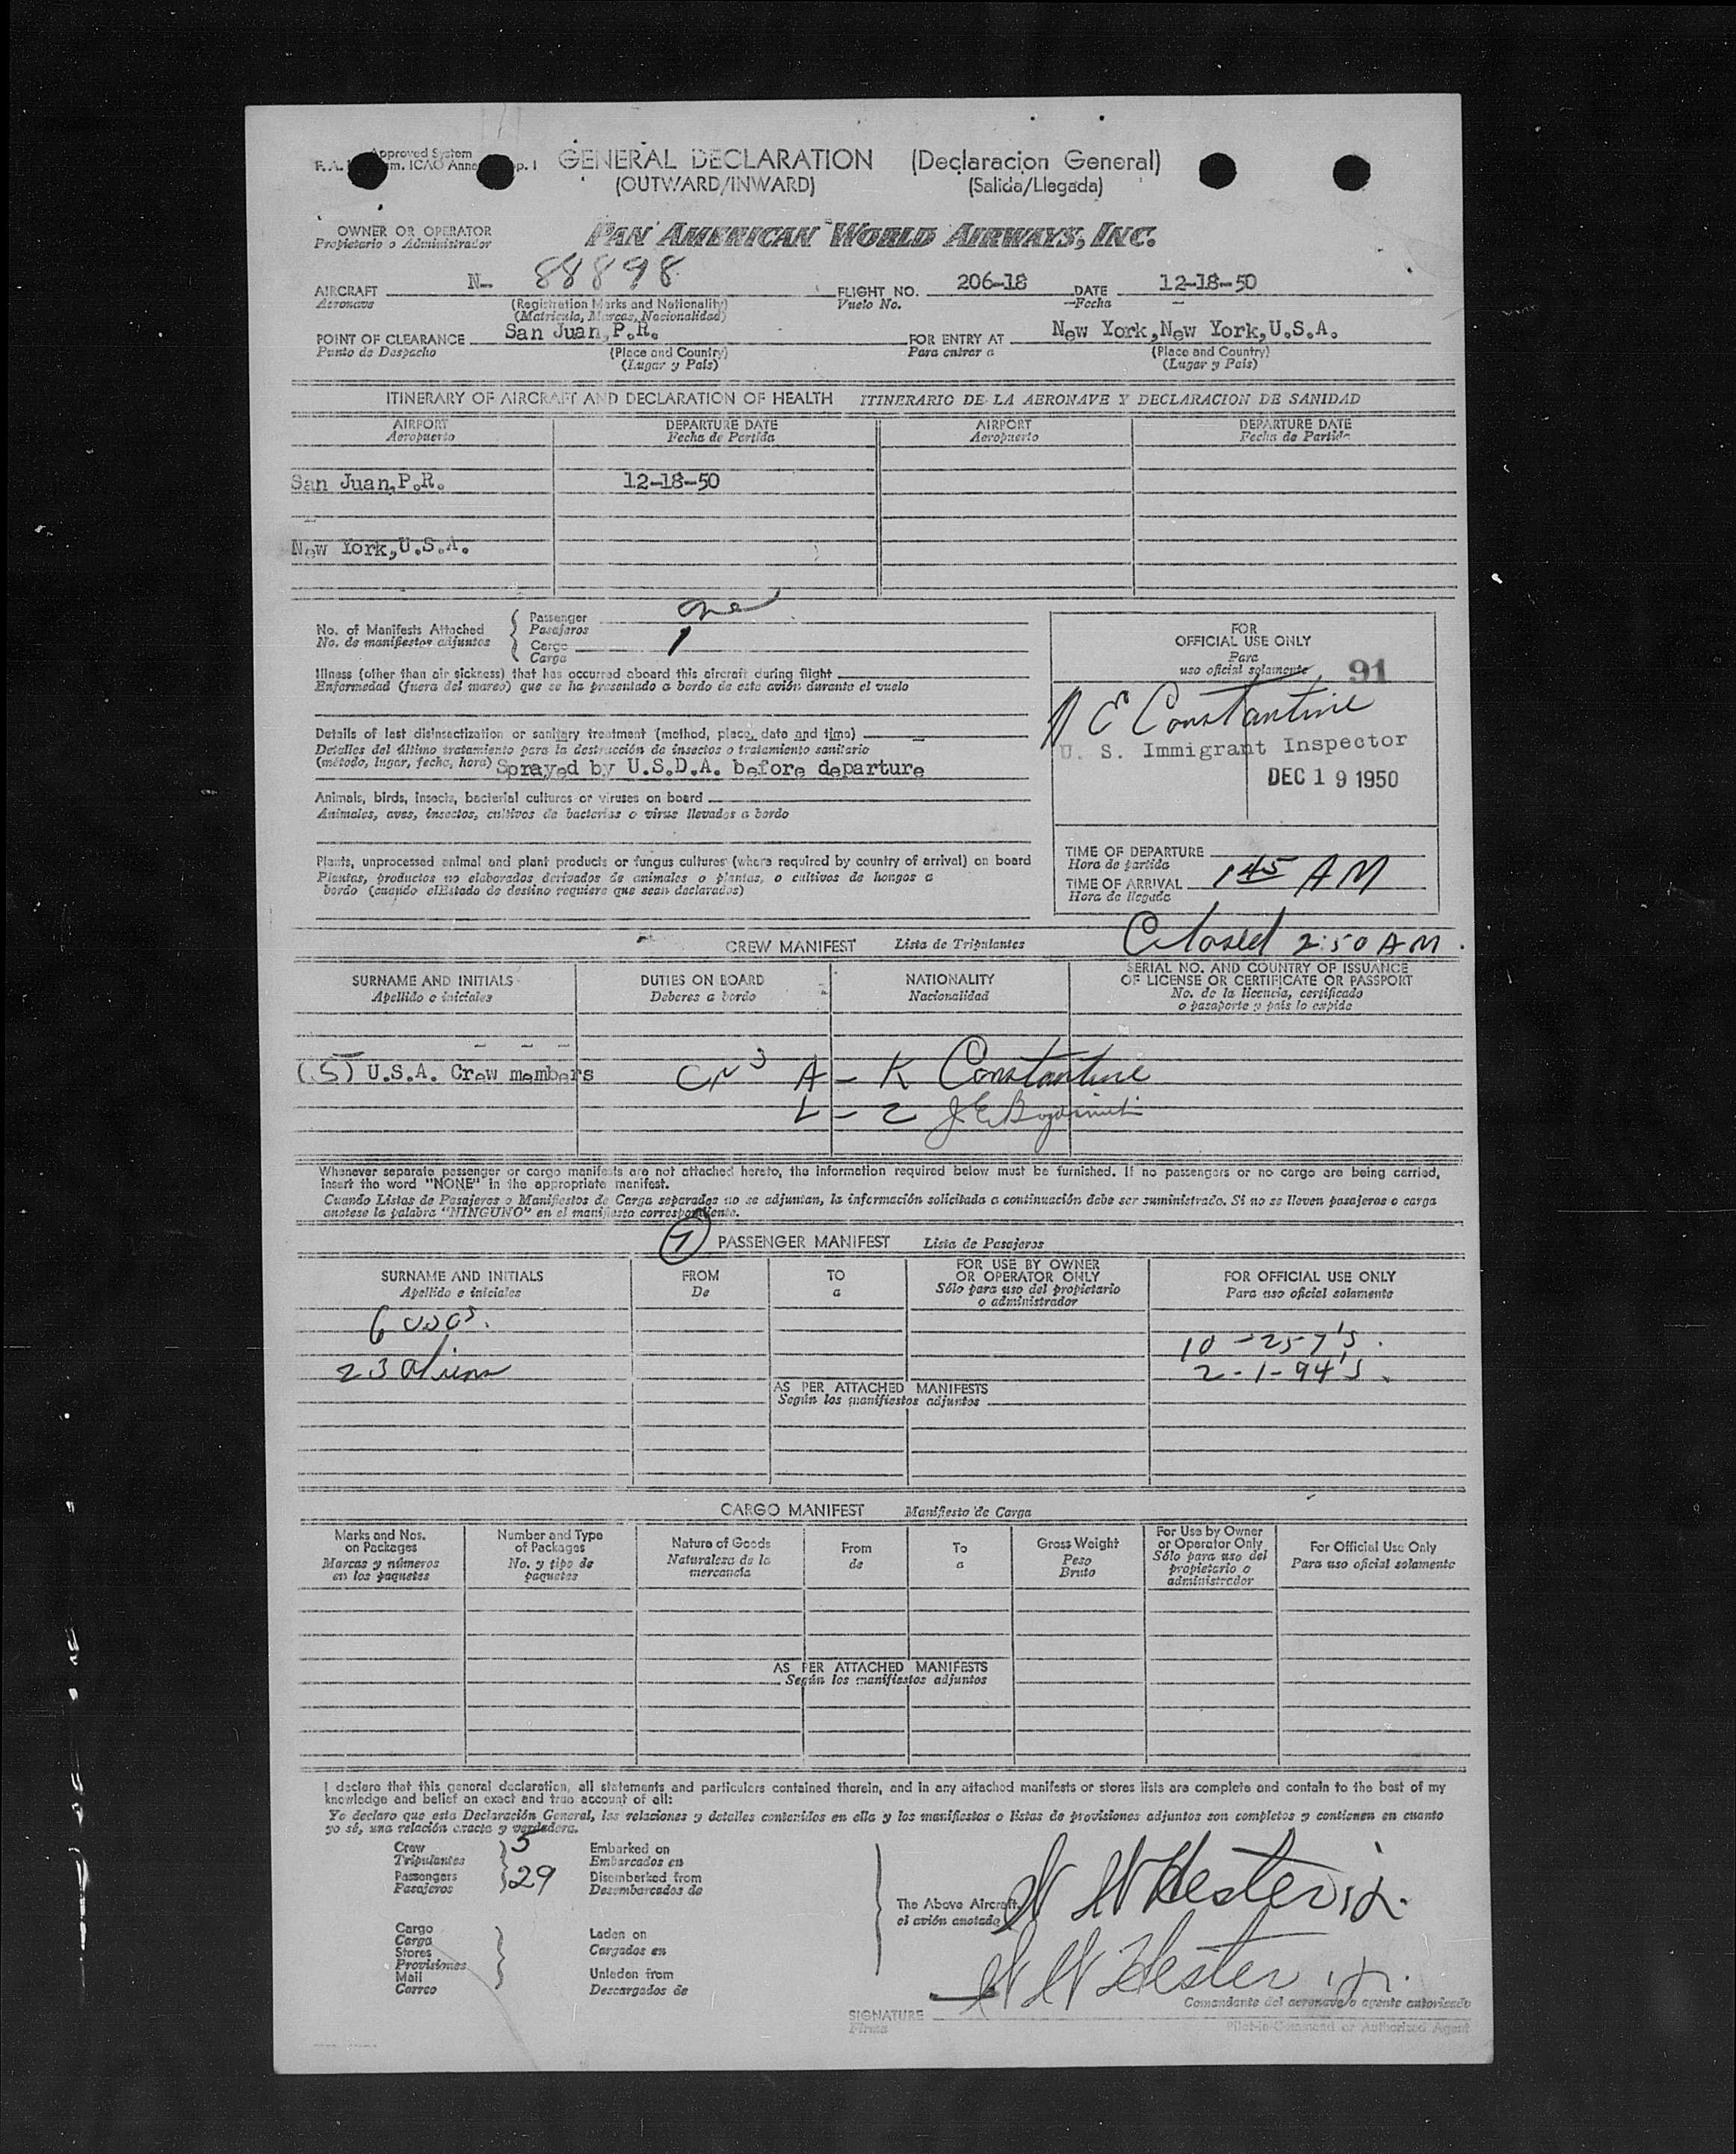 Approved System
GENERAL DECLARATION (Declaracion General)
(OUTWARD/INWARD) (Salida/Llegada)
OWNER OR OPERATOR
Propietario o Administrador
PAN AMERICAN WORLD AIRWAYS, INC.
AIRCRAFT N- 88898 FLIGHT NO. 206-18 DATE 12-18-50
Aeronave (Registration Marks and Nationality) Vuelo No. Fecha
(Matricula, Marcas, Nacionalidad)
POINT OF CLEARANCE San Juan,P.R. FOR ENTRY AT New York,New York,U.S.A.
Punto de Despacho (Place and Country) Para entrar a (Place and Country)
(Lugar y País) (Lugar y País)
ITINERARY OF AIRCRAFT AND DECLARATION OF HEALTH ITINERARIO DE LA AERONAVE Y DECLARACION DE SANIDAD
AIRPORT DEPARTURE DATE AIRPORT DEPARTURE DATE
Aeropuerto Fecha de Partida Aeropuerto Fecha de Partida
San Juan,P.R. 12-18-50
New York,U.S.A.
No. of Manifests Attached Passenger one
No. de manifiestos adjuntos Pasajeros
Cargo 1
Carga
Illness (other than air sickness) that has occurred aboard this aircraft during flight
Enfermedad (fuera del mareo) que se ha presentado a bordo de este avión durante el vuelo
Details of last disinsectization or sanitary treatment (method, place, date and time)
Detalles del último tratamiento para la destrucción de insectos o tratamiento sanitario
(método, lugar, fecha, hora) Sprayed by U.S.D.A. before departure
Animals, birds, insects, bacterial cultures or viruses on board
Animales, aves, insectos, cultivos de bacterias o virus llevados a bordo
Plants, unprocessed animal and plant products or fungus cultures (where required by country of arrival) on board
Plantas, productos no elaborados derivados de animales o plantas, o cultivos de hongos a
bordo (cuando elEstado de destino requiere que sean declarados)
FOR
OFFICIAL USE ONLY
Para
uso oficial solamente 91
E Constantine
U. S. Immigrant Inspector
DEC 19 1950
TIME OF DEPARTURE
Hora de partida
TIME OF ARRIVAL 1 45 AM
Hora de llegada
Closed 2:50 AM.
CREW MANIFEST Lista de Tripulantes
SURNAME AND INITIALS DUTIES ON BOARD NATIONALITY SERIAL NO. AND COUNTRY OF ISSUANCE
OF LICENSE OR CERTIFICATE OR PASSPORT
Apellido e iniciales Deberes a bordo Nacionalidad No. de la licencia, certificado
o pasaporte y país lo expide
(5) U.S.A. Crew members A - K Constantine
L - 2
Whenever separate passenger or cargo manifests are not attached hereto, the information required below must be furnished. If no passengers or no cargo are being carried,
insert the word "NONE" in the appropriate manifest.
Cuando Listas de Pasajeros o Manifiestos de Carga separados no se adjuntan, la información solicitada a continuación debe ser suministrada. Si no se lleven pasajeros o carga
anotese la palabra "NINGUNO" en el manifiesto correspondiente.
PASSENGER MANIFEST Lista de Pasajeros
SURNAME AND INITIALS FROM TO FOR USE BY OWNER
OR OPERATOR ONLY FOR OFFICIAL USE ONLY
Apellido e iniciales De a Sólo para uso del propietario
o administrador Para uso oficial solamente
6 USCs.
10 - 257's.
23 aliens 2 - 1-94's.
AS PER ATTACHED MANIFESTS
Según los manifiestos adjuntos
CARGO MANIFEST Manifiesto de Carga
Marks and Nos.
on Packages
Marcas y números
en los paquetes
Number and Type
of Packages
No. y tipo de
paquetes
Nature of Goods
Naturaleza de la
mercancía
From
de
To
a
Gross Weight
Peso
Bruto
For Use by Owner
or Operator Only
Sólo para uso del
propietario o
administrador
For Official Use Only
Para uso oficial solamente
AS PER ATTACHED MANIFESTS
Según los manifiestos adjuntos
I declare that this general declaration, all statements and particulars contained therein, and in any attached manifests or stores lists are complete and contain to the best of my
knowledge and belief an exact and true account of all:
Yo declaro que esta Declaración General, las relaciones y detalles contenidos en ella y los manifiestos o listas de provisiones adjuntos son completos y contienen en cuanto
yo sé, una relación exacta y verdadera.
Crew 5 Embarked on
Tripulantes Embarcados en
Passengers 29 Disembarked from
Pasajeros Desembarcados de
The Above Aircraft
el avión anotado
Hester jr.
Cargo
Carga Laden on
Stores Cargados en
Provisiones
Mail Unladen from
Correo Descargados de
Hester jr.
Comandante del aeronave o agente autorizado
SIGNATURE
Firma Pilot-in-Command or Authorized Agent